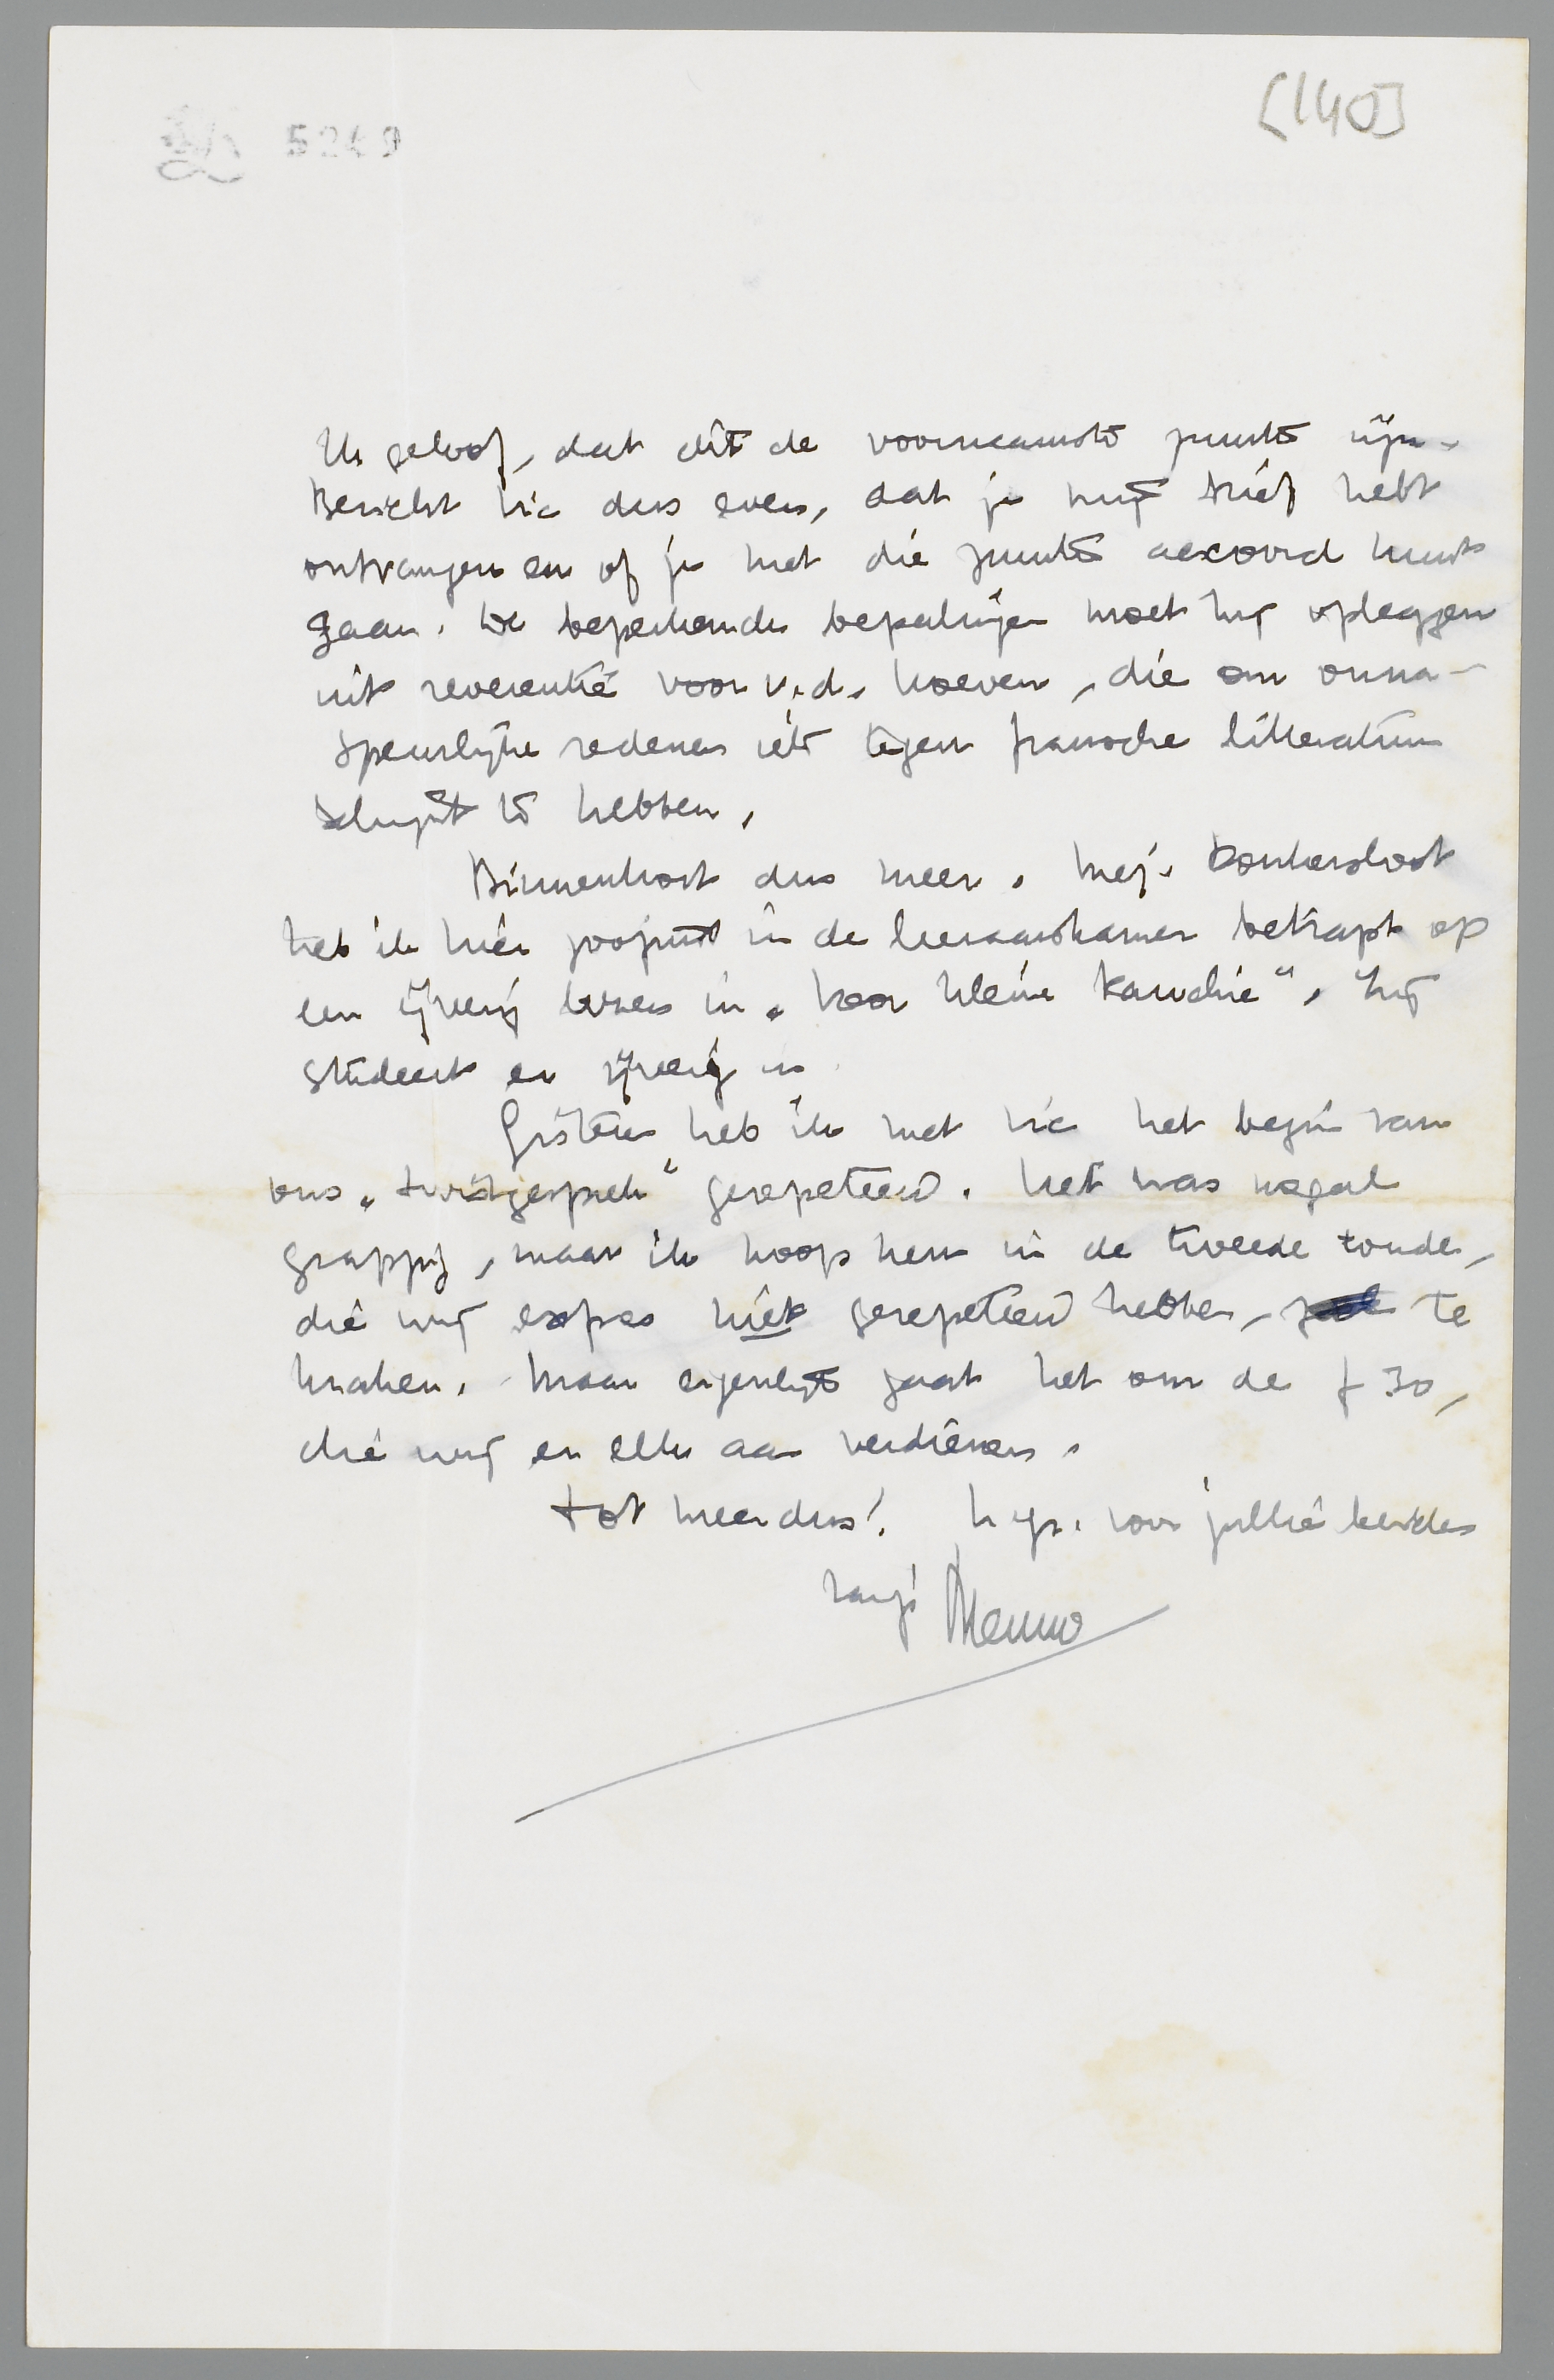 5249
[140]
Ik geloof, dat dit de voornaamste punten zijn.
Bericht Vic dus even, dat je mijn brief hebt
ontvangen en of je met die punten accoord kunt
gaan. De beperkende bepalingen moet hij opleggen
uit reverentie voor v.d. Hoeven, die om onna-
speurlijke redenen iets tegen fransche litteratuur
schijnt te hebben.
Binnenkort dus meer. Mej. Donkersloot
heb ik hier in de leeraarskamer betrapt op
een ijverig lezen in „Voor kleine Parochie". Zij
studeert er ijverig in.
Gisteren heb ik met Vic het begin van
ons „twistgesprek" gerepeteerd. Het was nogal
grappig, maar ik hoop hem in de tweede ronde,
die wij expres niet gerepeteerd hebben, te
kraken. Maar eigenlijk gaat het om de f 30,
die wij er elk aan verdienen.
Tot meer dus! h. gr. voor jullie beiden
van je Menno